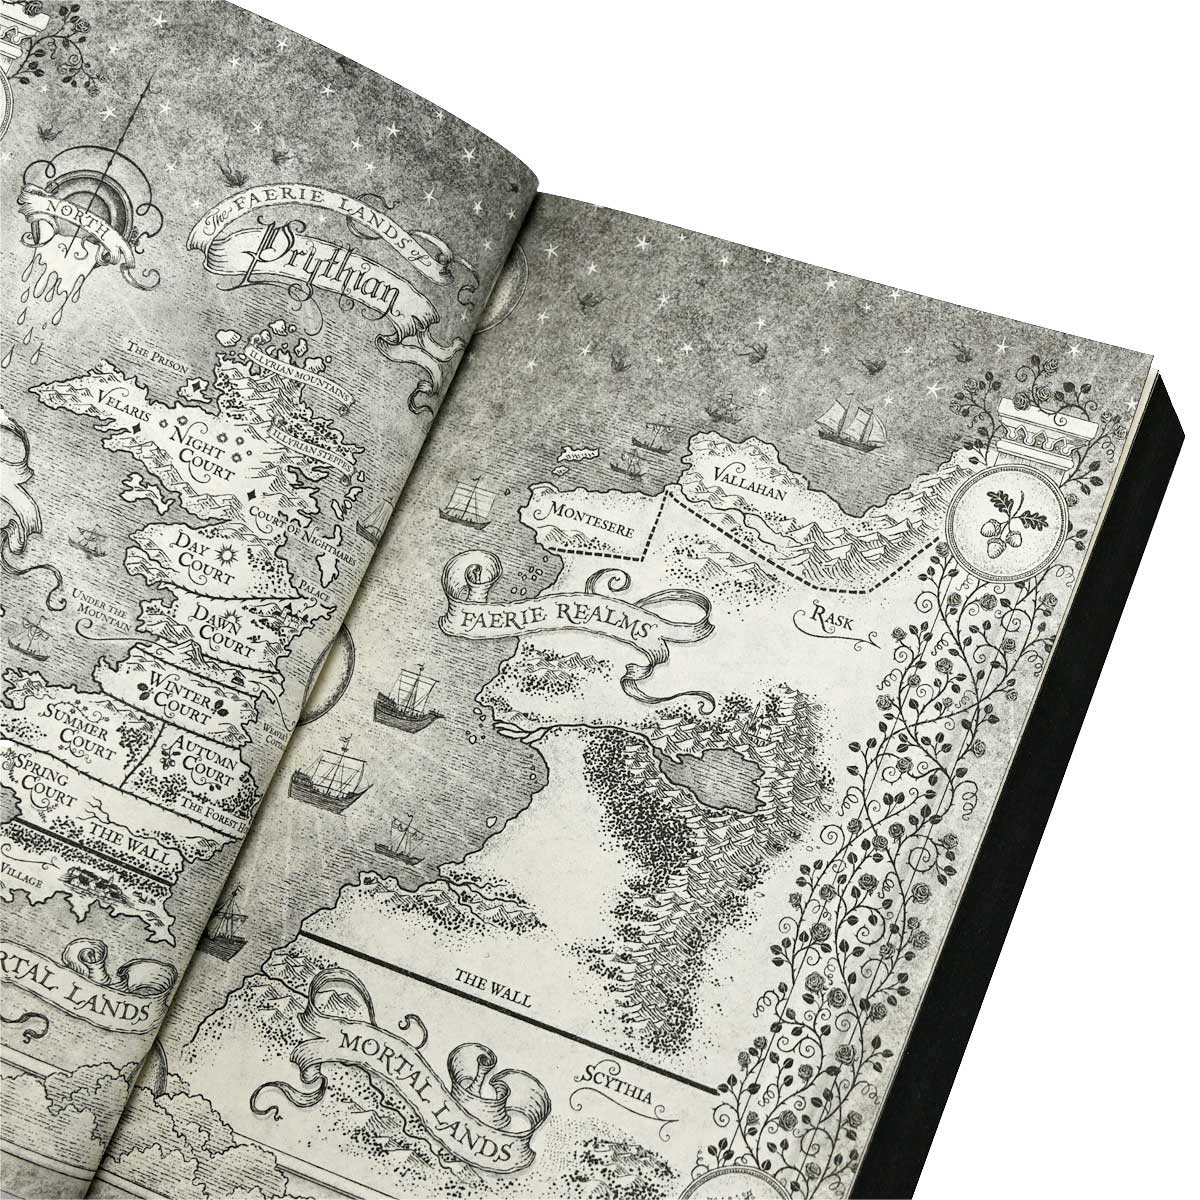 NORTH
The FAERIE LANDS of
Prythian
THE PRISON
ILLYRIAN MOUNTAINS
VELARIS
NIGHT
COURT
ILLYRIAN STEPPES
COURT OF NIGHTMARES
DAY
COURT
PALACE
UNDER THE
MOUNTAIN
DAWN
COURT
WINTER
COURT
SUMMER
COURT
AUTUMN
COURT
SPRING
COURT
THE FOREST
THE WALL
VILLAGE
LANDS
VALLAHAN
MONTESERE
RASK
FAERIE REALMS
THE WALL
SCYTHIA
MORTAL LANDS